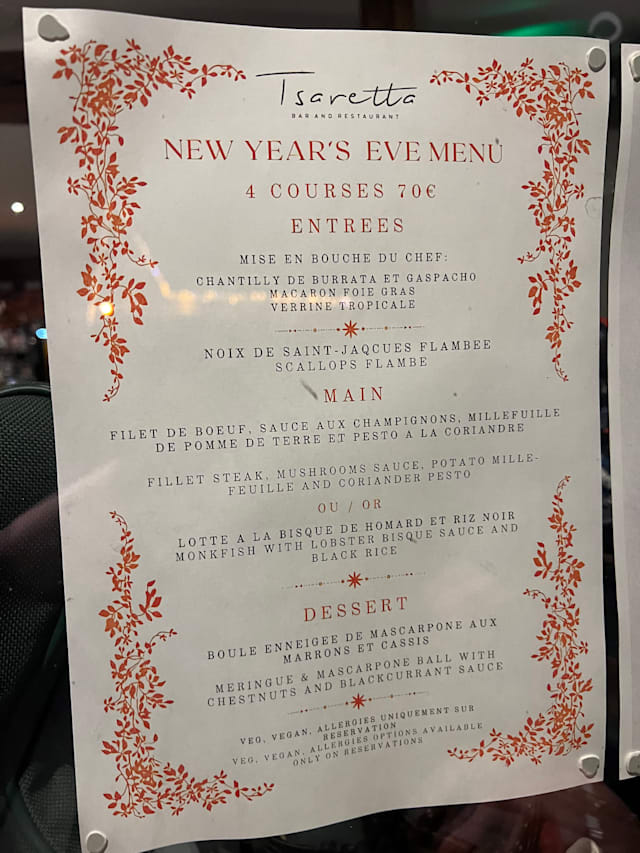 Tsaretta
BAR AND RESTAURANT
NEW YEAR'S EVE MENU
4 COURSES 70€
ENTREES
MISE EN BOUCHE DU CHEF:
CHANTILLY DE BURRATA ET GASPACHO
MACARON FOIE GRAS
VERRINE TROPICALE
NOIX DE SAINT-JAQCUES FLAMBEE
SCALLOPS FLAMBE
MAIN
FILET DE BOEUF, SAUCE AUX CHAMPIGNONS, MILLEFUILLE
DE POMME DE TERRE ET PESTO A LA CORIANDRE
FILLET STEAK, MUSHROOMS SAUCE, POTATO MILLE-
FEUILLE AND CORIANDER PESTO
OU / OR
LOTTE A LA BISQUE DE HOMARD ET RIZ NOIR
MONKFISH WITH LOBSTER BISQUE SAUCE AND
BLACK RICE
DESSERT
BOULE ENNEIGEE DE MASCARPONE AUX
MARRONS ET CASSIS
MERINGUE & MASCARPONE BALL WITH
CHESTNUTS AND BLACKCURRANT SAUCE
VEG, VEGAN, ALLERGIES UNIQUEMENT SUR
RESERVATION
VEG, VEGAN, ALLERGIES OPTIONS AVAILABLE
ONLY ON RESERVATIONS